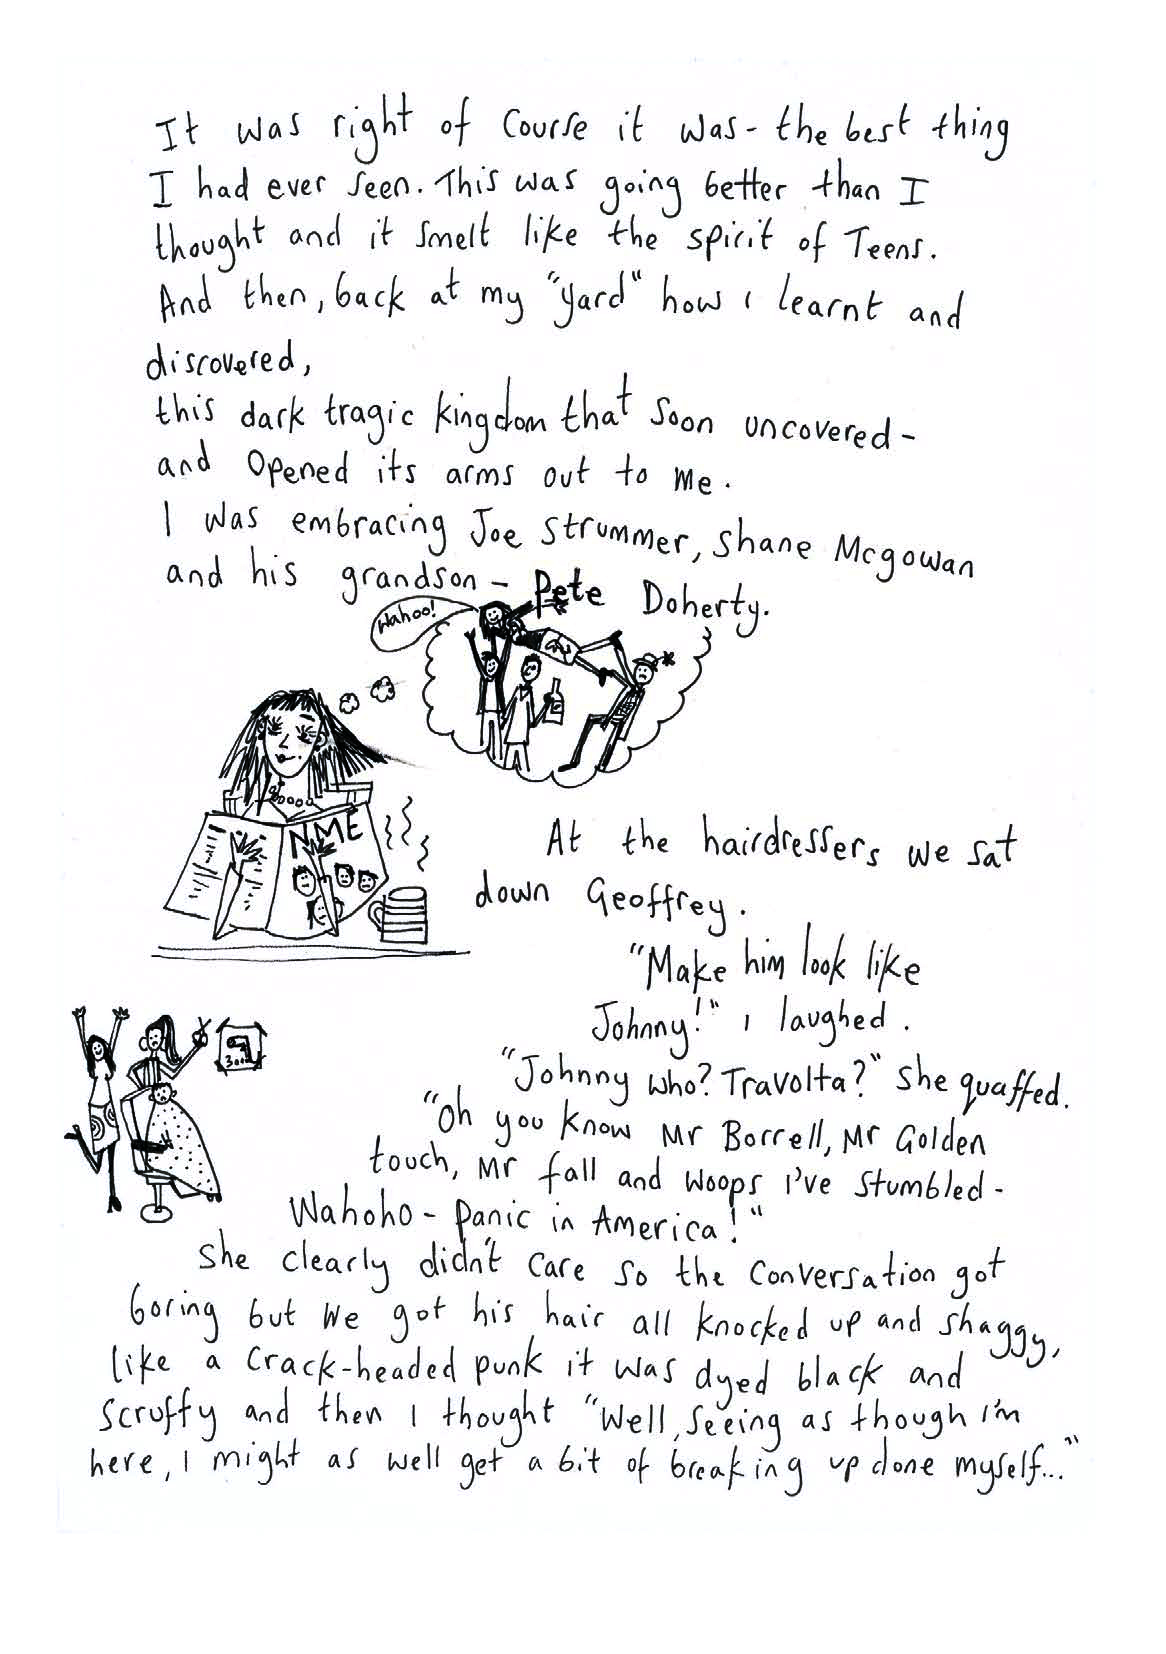 It was right of course it was - the best thing
I had ever seen. This was going better than I
thought and it smelt like the spirit of Teens.
And then, back at my "yard" how I learnt and
discovered,
this dark tragic kingdom that soon uncovered -
and opened its arms out to me.
I was embracing Joe Strummer, Shane Mcgowan
and his grandson - Pete Doherty.
Wahoo!
NME
At the hairdressers we sat
down Geoffrey.
"Make him look like
Johnny!" I laughed.
"Johnny who? Travolta?" she quaffed.
"Oh you know Mr Borrell, Mr Golden
touch, Mr fall and woops I've stumbled -
Wahoho - panic in America!"
She clearly didn't care so the conversation got
boring but we got his hair all knocked up and shaggy,
like a crack-headed punk it was dyed black and
scruffy and then I thought "Well, seeing as though I'm
here, I might as well get a bit of breaking up done myself..."